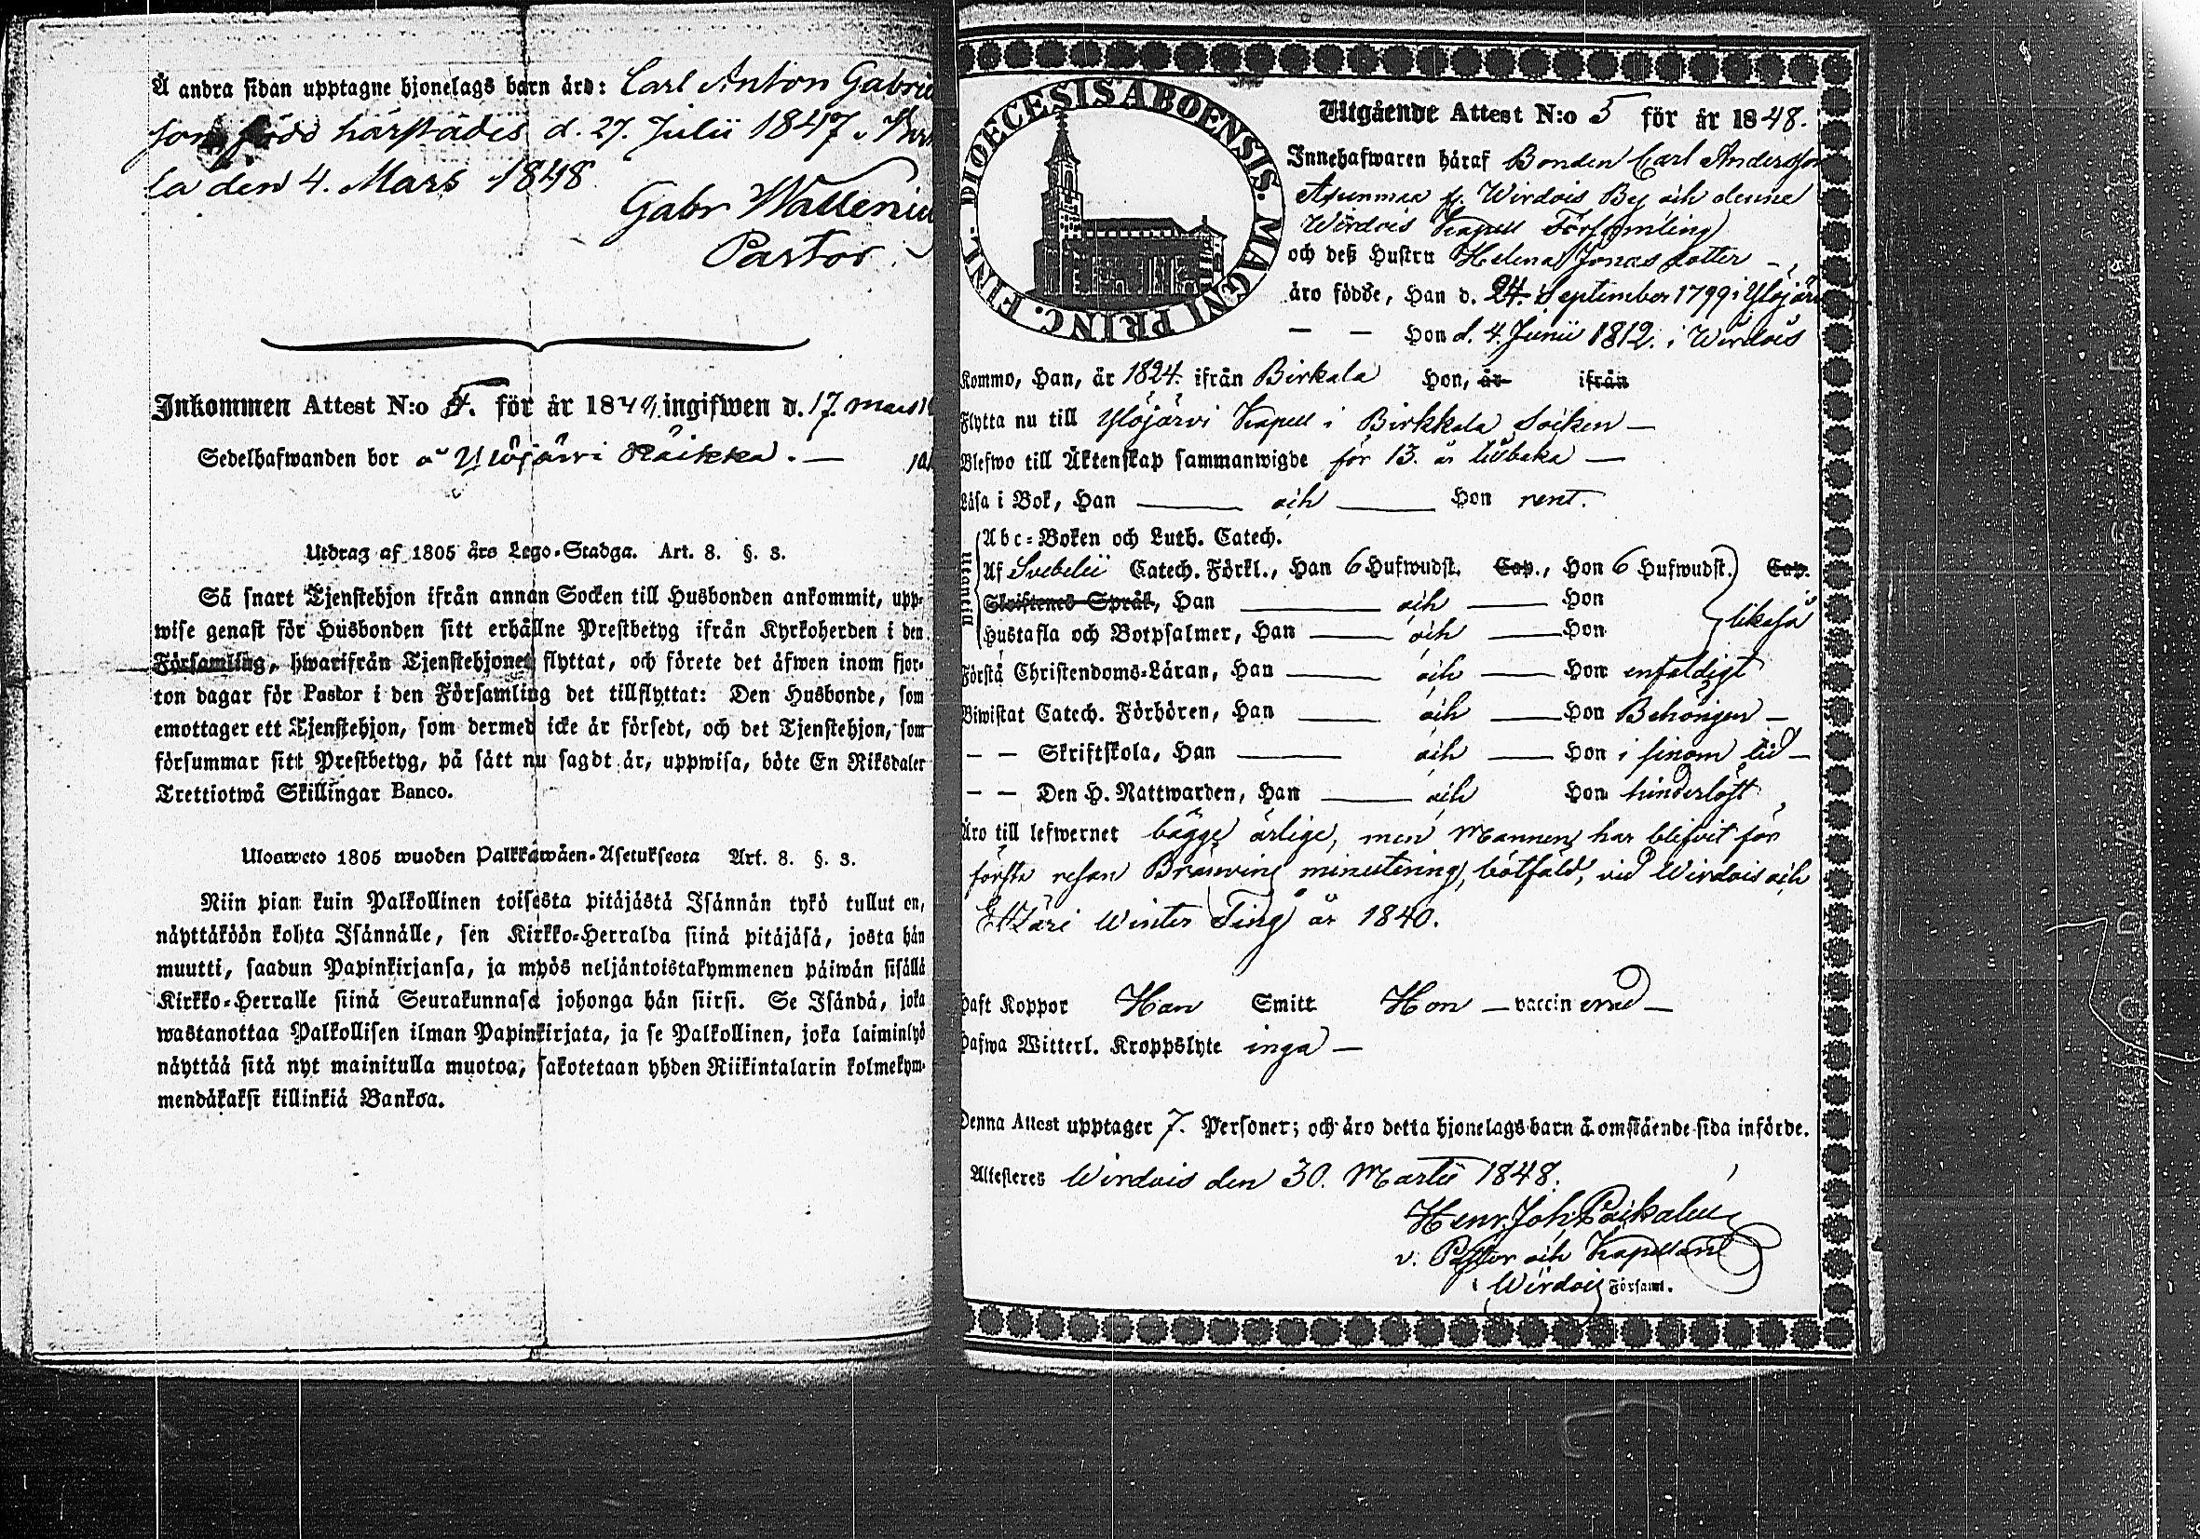 Å andra sidan upptagne hjonelags barn äro: Carl Anton Gabriel
son född härstädes d. 27. Julii 1847.
la den 4. Mars 1848
Gabr Walleniu
Pastor.
Inkommen Attest N:o 4. för år 1848, ingifwen d. 17. mars
Sedelhafwanden bor å Ylöjärvi Räikkä. —
Utdrag af 1805 års Lego-Stadga. Art. 8. §. 3.
Så snart Tjenstehjon ifrån annan Socken till Husbonden ankommit, upp-
wise genast för Husbonden sitt erhållne Prestbetyg ifrån Kyrkoherden i den
Församling, hwarifrån Tjenstehjonet flyttat, och förete det äfwen inom fjor-
ton dagar för Pastor i den Församling det tillflyttat: Den Husbonde, som
emottager ett Tjenstehjon, som dermed icke är försedt, och det Tjenstehjon, som
försummar sitt Prestbetyg, på sätt nu sagdt är, uppwisa, böte En Riksdaler
Trettiotwå Skillingar Banco.
Ulosweto 1805 wuoden Palkkawäen-Asetuksesta Art. 8. §. 3.
Niin pian kuin Palkollinen toisesta pitäjästä Isännän tykö tullut on,
näyttäköön kohta Isännälle, sen Kirkko-Herralda siinä pitäjäsä, josta hän
muutti, saadun Papinkirjansa, ja myös neljäntoistakymmenen päiwän sisällä
Kirkko-Herralle siinä Seurakunnasa johonga hän siirsi. Se Isändä, joka
wastanottaa Palkollisen ilman Papinkirjata, ja se Palkollinen, joka laiminlyö
näyttää sitä nyt mainitulla muotoa, sakotetaan yhden Riikintalarin kolmekym-
mendäkaksi killinkiä Bankoa.
DIOECESIS ABOENSIS. MAGNI PRINC. FINL.
Utgående Attest N:o 5 för år 1848.
Innehafwaren häraf Bonden Carl Andersson
Asunmaa fr. Wirdois By och denne
Wirdois Kapell Församling
och deß Hustru Helena Jonas dotter —,
äro födde, Han d. 24 September 1799 i Ylöjär
— — Hon d. 4. Junii 1812. i Wirdois
Kommo, Han, år 1824. ifrån Birkala Hon, år ifrån
Flytta nu till Ylöjärvi Kapell i Birkkala Socken —
Blefwo till Äktenskap sammanwigde för 13. år tilbaka —
Läsa i Bok, Han — och — Hon rent.
Utanell
Abc-Boken och Luth. Catech.
Af Svebelii Catech. Förkl., Han 6 Hufwudst. Cap., Hon 6 Hufwudst. Cap.
Skriftenes Språk, Han — och — Hon
likaså
Hustafla och Botpsalmer, Han — och — Hon
Förstå Christendoms-Läran, Han — och — Hon enfaldigt
Biwistat Catech. Förhören, Han — och — Hon Behörigen —
— — Skriftskola, Han — och — Hon i sinom tid —
— — Den H. Nattwarden, Han — och Hon hinderlöst
Äro till lefwernet bägge ärlige, men Mannen har blifvit för
första resan Bränvins minutering, bötfäld, vid Wirdois och
Etzäri Winter Ting år 1840.
Haft Koppor Han Smitt Hon — vaccin erad —
Hafwa Witterl. Kroppslyte inga —
Denna Attest upptager 7. Personer; och äro detta hjonelags barn å omstående sida införde.
Attesteres Wirdois den 30. Martii 1848.
Henr. Joh:
v. Pastor och Kapellan
i Wirdois Församl.